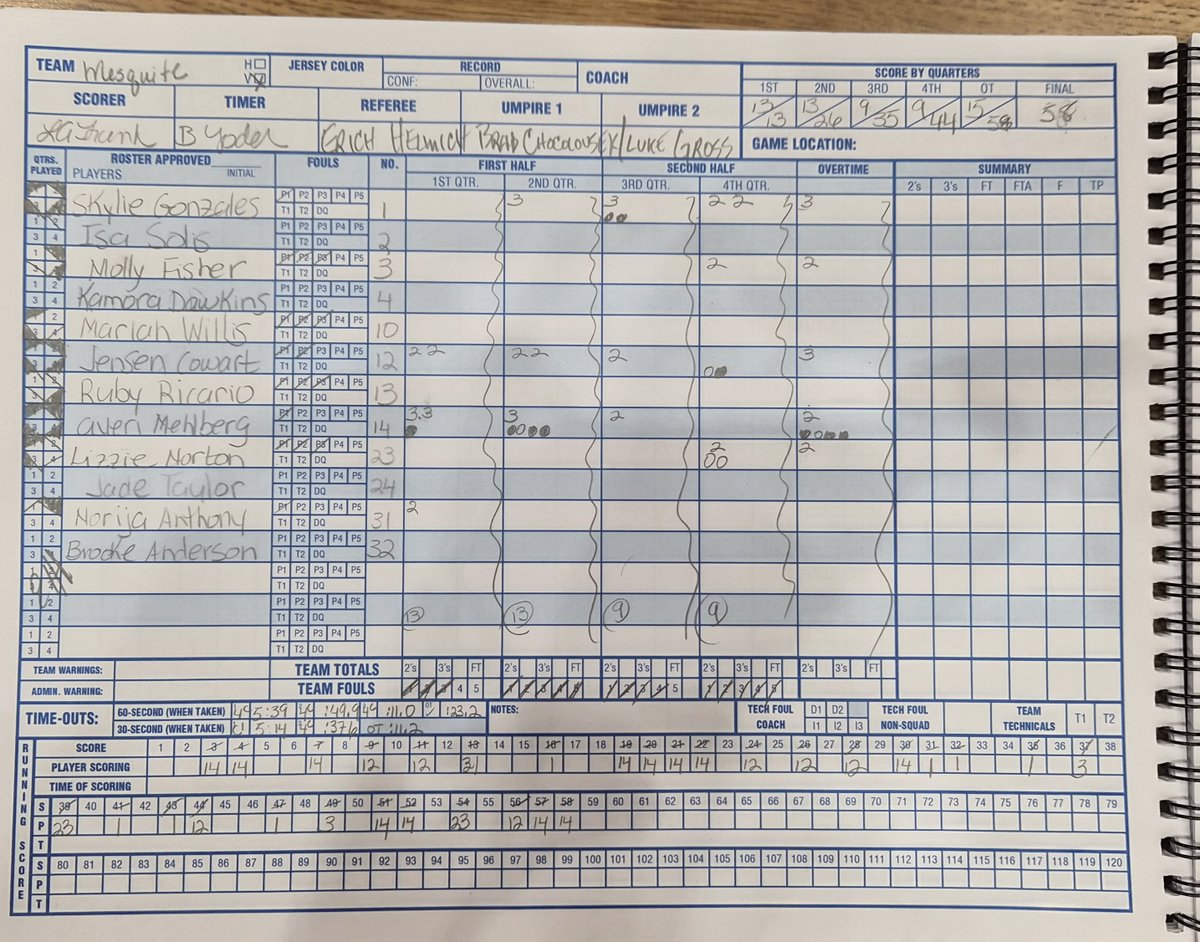 TEAM Mesquite H V JERSEY COLOR RECORD COACH SCORE BY QUARTERS
CONF: OVERALL: 1ST 2ND 3RD 4TH OT FINAL
SCORER TIMER REFEREE UMPIRE 1 UMPIRE 2 13/13 13/26 9/35 9/44 15/58 58
B Yoder ERICH HELMICH BRAD CHOCOLOUSEK/LUKE GROSS GAME LOCATION:
QTRS. PLAYED ROSTER APPROVED INITIAL PLAYERS FOULS NO. FIRST HALF SECOND HALF OVERTIME SUMMARY
1ST QTR. 2ND QTR. 3RD QTR. 4TH QTR. 2's 3's FT FTA F TP
Skylie Gonzales P1 P2 P3 P4 P5 T1 T2 DQ 1 3 3 2 2 3
Isa Solis P1 P2 P3 P4 P5 T1 T2 DQ 2
Molly Fisher P1 P2 P3 P4 P5 T1 T2 DQ 3 2 2
Kamora Dawkins P1 P2 P3 P4 P5 T1 T2 DQ 4
Mariah Willis P1 P2 P3 P4 P5 T1 T2 DQ 10
Jensen Cowart P1 P2 P3 P4 P5 T1 T2 DQ 12 2 2 2 2 2 3
Ruby Ricario P1 P2 P3 P4 P5 T1 T2 DQ 13
Aven Mehlberg P1 P2 P3 P4 P5 T1 T2 DQ 14 3 3 3 2 2
Lizzie Norton P1 P2 P3 P4 P5 T1 T2 DQ 23 2 2
Jade Taylor P1 P2 P3 P4 P5 T1 T2 DQ 24
Norija Anthony P1 P2 P3 P4 P5 T1 T2 DQ 31 2
Brooke Anderson P1 P2 P3 P4 P5 T1 T2 DQ 32
P1 P2 P3 P4 P5 T1 T2 DQ
1 2 3 4 P1 P2 P3 P4 P5 T1 T2 DQ 13 13 9 9
1 2 3 4 P1 P2 P3 P4 P5 T1 T2 DQ
TEAM WARNINGS: TEAM TOTALS 2's 3's FT 2's 3's FT 2's 3's FT 2's 3's FT 2's 3's FT
ADMIN. WARNING: TEAM FOULS 1 2 3 4 5 1 2 3 4 5 1 2 3 4 5 1 2 3 4 5
TIME-OUTS: 60-SECOND (WHEN TAKEN) 5:39 :49.9 :11.0 NOTES: TECH FOUL COACH D1 D2 I1 I2 I3 TECH FOUL NON-SQUAD TEAM TECHNICALS T1 T2
30-SECOND (WHEN TAKEN) 5:14 :37.6 OT :11.2
RUNNING SCORE
SCORE 1 2 3 4 5 6 7 8 9 10 11 12 13 14 15 16 17 18 19 20 21 22 23 24 25 26 27 28 29 30 31 32 33 34 35 36 37 38
PLAYER SCORING 14 14 14 12 12 31 1 14 14 14 14 12 12 12 14 1 1 1 3
TIME OF SCORING
S 39 40 41 42 43 44 45 46 47 48 49 50 51 52 53 54 55 56 57 58 59 60 61 62 63 64 65 66 67 68 69 70 71 72 73 74 75 76 77 78 79
P 23 1 1 12 1 3 14 14 23 12 14 14
T
S 80 81 82 83 84 85 86 87 88 89 90 91 92 93 94 95 96 97 98 99 100 101 102 103 104 105 106 107 108 109 110 111 112 113 114 115 116 117 118 119 120
P
T